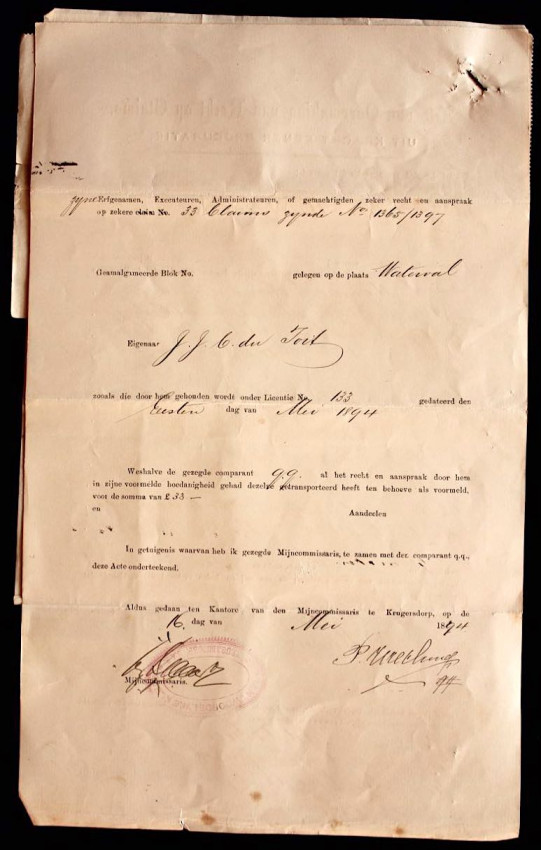 zyne Erfgenamen, Executeuren, Administrateuren, of gemachtigden zeker recht en aanspraak
op zekere claim No. 33 Claims zynde No 1365/1397
Geamalgameerde Blok No. gelegen op de plaats Waterval
Eigenaar J. J. C. du Toit
zooals die door hem gehouden wordt onder Licentie No. 133 gedateerd den
Eersten dag van Mei 1894
Weshalve de gezegde comparant q.q. al het recht en aanspraak door hem
in zijne voormelde hoedanigheid gehad dezelve getransporteerd heeft ten behoeve als voormeld,
voor de somma van £ 33 —
en Aandeelen
In getuigenis waarvan heb ik gezegde Mijncommissaris, te samen met den comparant q.q.,
deze Acte onderteekend.
Aldus gedaan ten Kantore van den Mijncommissaris te Krugersdorp, op de
16 dag van Mei 1894
Mijncommissaris.
qq